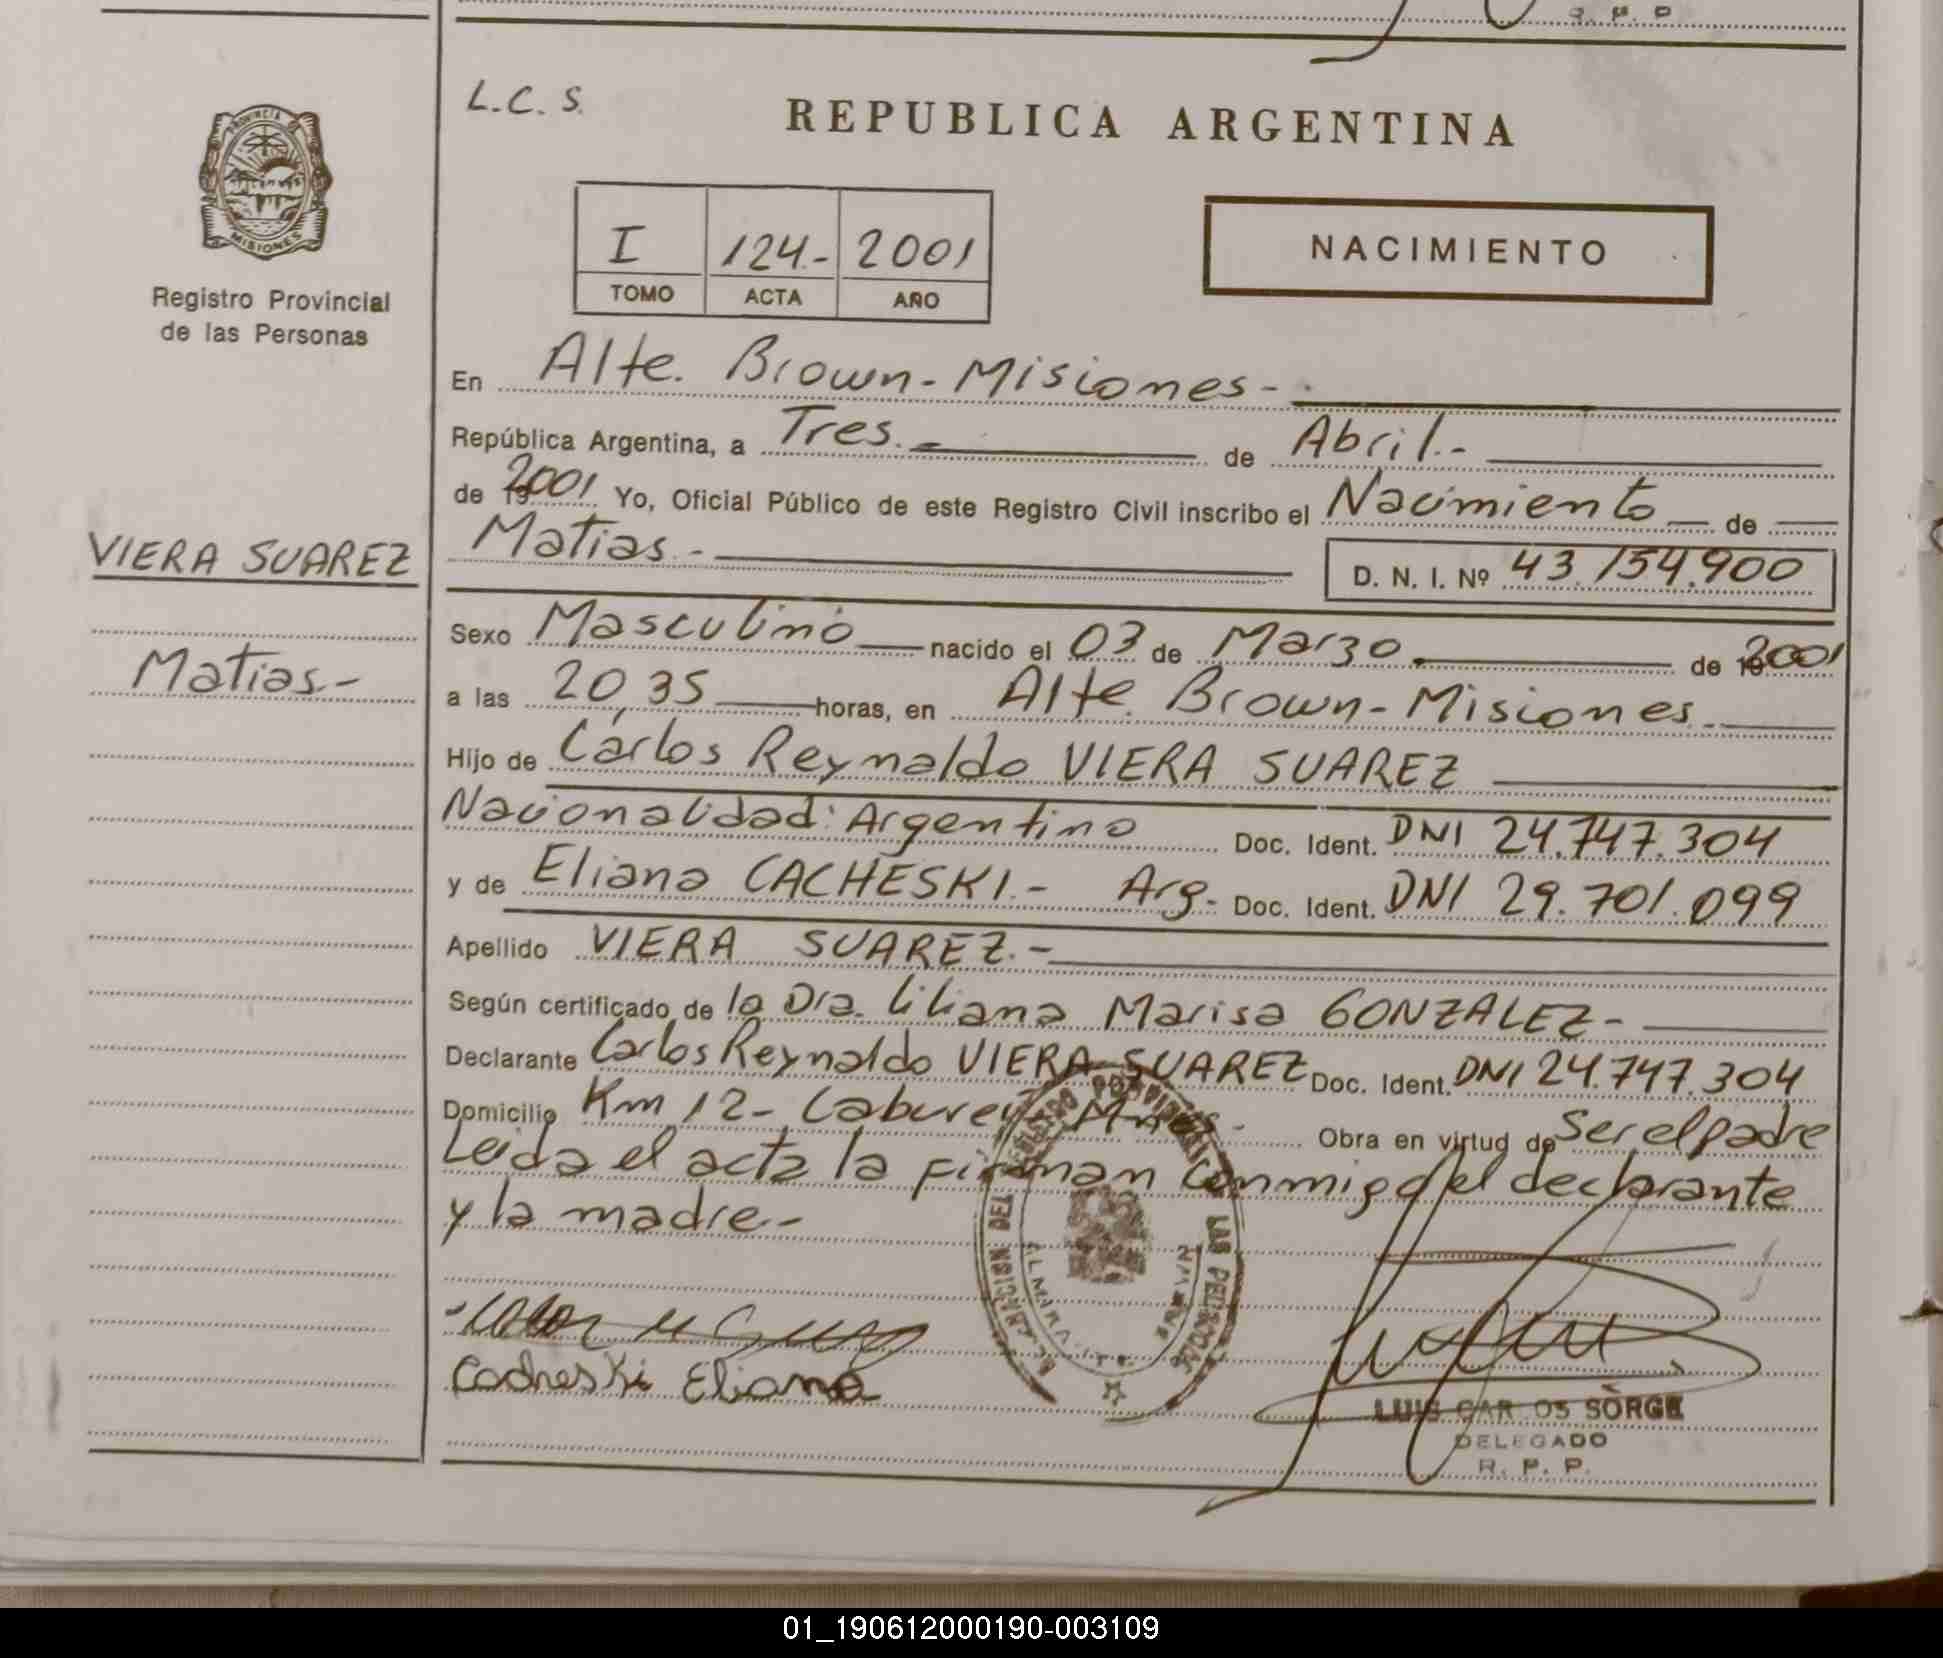 L.C.S.
REPUBLICA ARGENTINA
PROVINCIA
MISIONES
Registro Provincial
de las Personas
I 124.- 2001
TOMO ACTA AÑO
NACIMIENTO
En Alte. Brown - Misiones -
República Argentina, a Tres.- de Abril.-
de 2001 Yo, Oficial Público de este Registro Civil inscribo el Nacimiento de
Matias.- D. N. I. Nº 43.154.900
VIERA SUAREZ
Matias.-
Sexo Masculino nacido el 03 de Marzo de 2001
a las 20,35 horas, en Alte. Brown - Misiones
Hijo de Carlos Reynaldo VIERA SUAREZ
Nacionalidad: Argentino Doc. Ident. DNI 24.747.304
y de Eliana CACHESKI.- Arg.- Doc. Ident. DNI 29.701.099
Apellido VIERA SUAREZ.-
Según certificado de la Dra. Liliana Marisa GONZALEZ -
Declarante Carlos Reynaldo VIERA SUAREZ Doc. Ident. DNI 24.747.304
Domicilio Km 12 - Mnes - Obra en virtud de Ser el padre
Leida el acta la firman conmigo el declarante
y la madre.-
DELEGACION DEL LAS PERSONAS
Cacheski Eliana
LUIS CARLOS SORGE
DELEGADO
R. P. P.
01_190612000190-003109